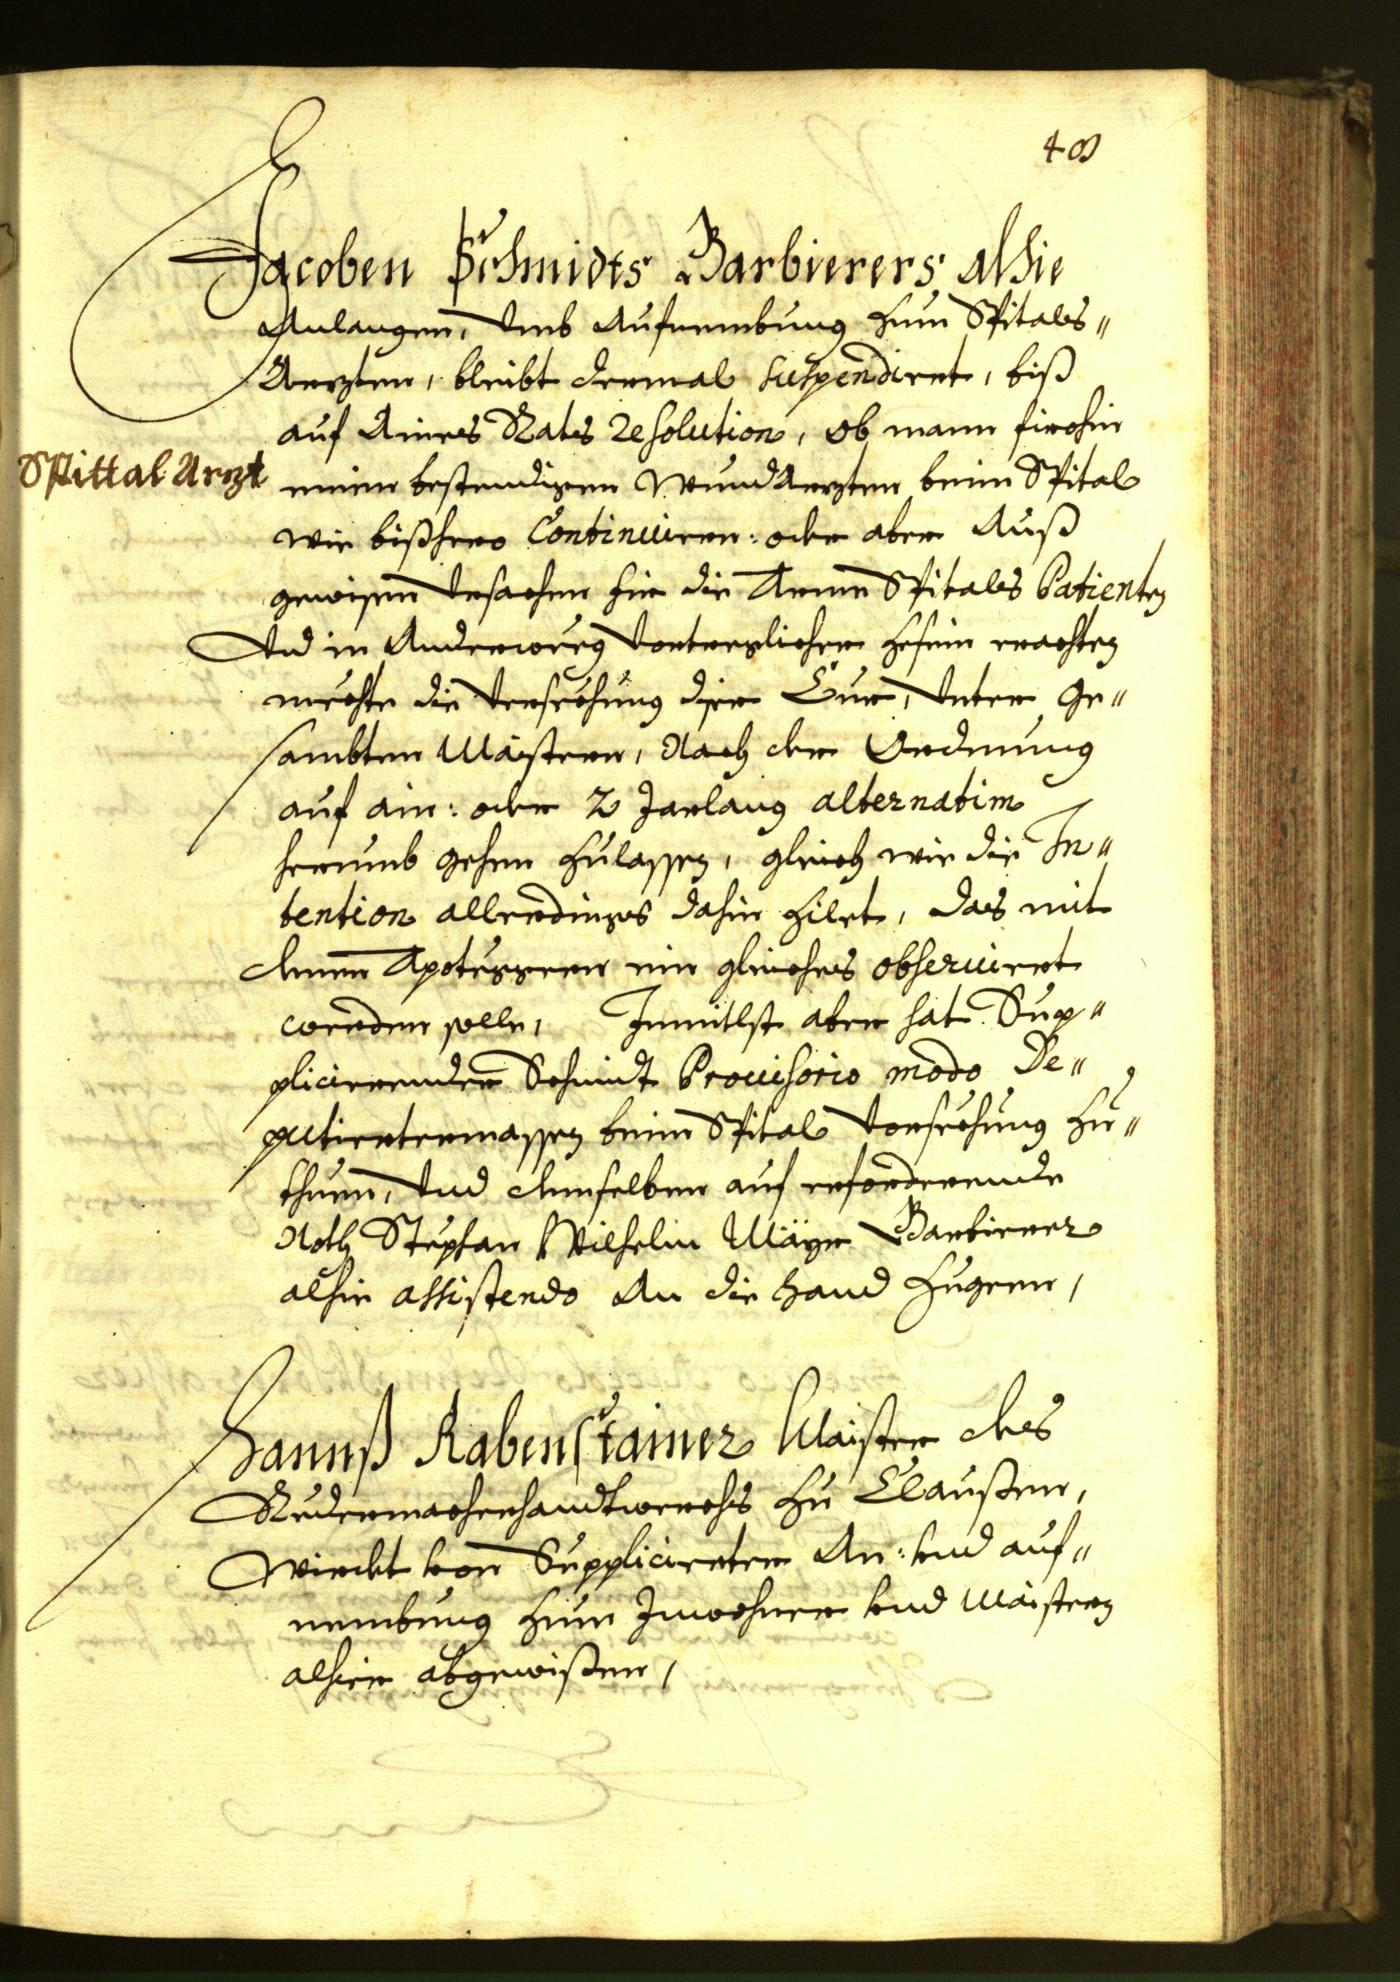 48
Jacoben Schmidts Barbierers alhie
Anlangen, vmb Aufnembung zum Spitals"
Aerzten, bleibt dermal suspendiert, biß
auf Aines Rats resolution, ob mann firohin
Spittal Arzt
einen bestendigen WundAerzten beim Spital
wie bißhero Continuirn: oder aber Auß
gewisen Vrsachen fir die Armen Spitals Patienten
Vnd in Anderweeg vortreglicher zesein erachten
mechte die Versechung diser Cur, Vnter ge"
sambten Maistern, Nach der Ordnung
auf ain: oder 2 Jarlang alternatim
herumb gehen zulassen, gleich wie die In"
tention allerdings dahin zilet, das mit
denen Apoteggern ein gleiches obseruiert
werden solle, Inmitlst aber hat Sup"
plicierender Schmidt Prouisorio modo De"
putiertermassen beim Spital Vorsechung zu"
thuen, Vnd demselben auf erforderende
Noth Stephan Wilhelm Mäyr Barbierer
alhie assistendo An die Hand zugeen,
Hannß Rabenstainer Maister des
Redermacherhandtwerchs zu Claußen,
Wierdt von Supplicierter An: vnd auf"
nembung zum Inwohner vnd Maistern
alhier abgewißen,